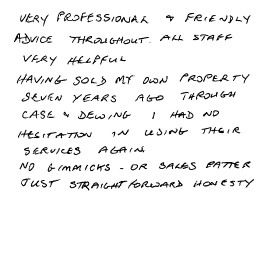 VERY PROFESSIONAL & FRIENDLY
ADVICE THROUGHOUT. ALL STAFF
VERY HELPFUL
HAVING SOLD MY OWN PROPERTY
SEVEN YEARS AGO THROUGH
CASE & DEWING I HAD NO
HESITATION IN USING THEIR
SERVICES AGAIN
NO GIMMICKS - OR SALES PATTER
JUST STRAIGHTFORWARD HONESTY